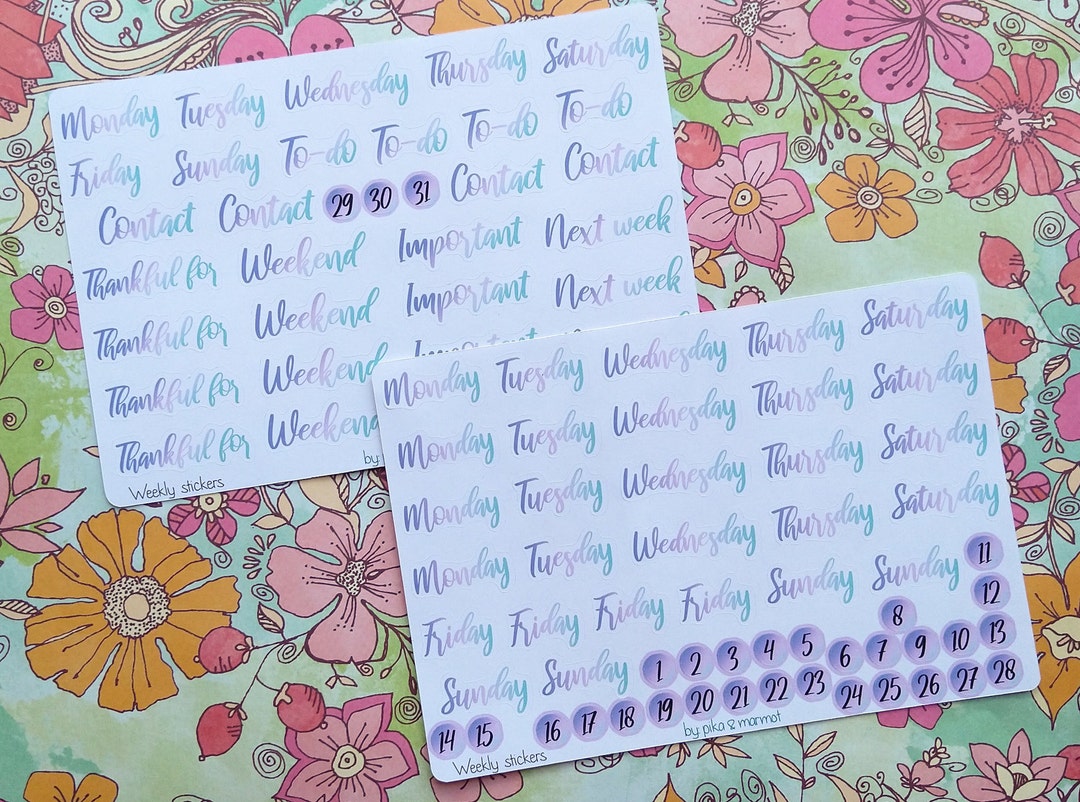 Monday Tuesday Wednesday Thursday Saturday
Friday Sunday To-do To-do To-do To-do
Contact Contact 29 30 31 Contact Contact
Thankful for Weekend Important Next week
Thankful for Weekend Important Next week
Thankful for Weekend
Thankful for Weekend
Weekly stickers by:
Monday Tuesday Wednesday Thursday Saturday
Monday Tuesday Wednesday Thursday Saturday
Monday Tuesday Wednesday Thursday Saturday
Monday Tuesday Wednesday Thursday Saturday
Friday Friday Friday Friday Sunday Sunday 11
12
Sunday Sunday 1 2 3 4 5 6 7 8 9 10 13
14 15 16 17 18 19 20 21 22 23 24 25 26 27 28
Weekly stickers by: pika & marmot